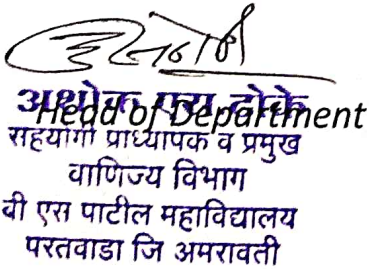 अशोक
Head of Department
सहयोगी प्राध्यापक व प्रमुख
वाणिज्य विभाग
बी एस पाटील महाविद्यालय
परतवाडा जि अमरावती